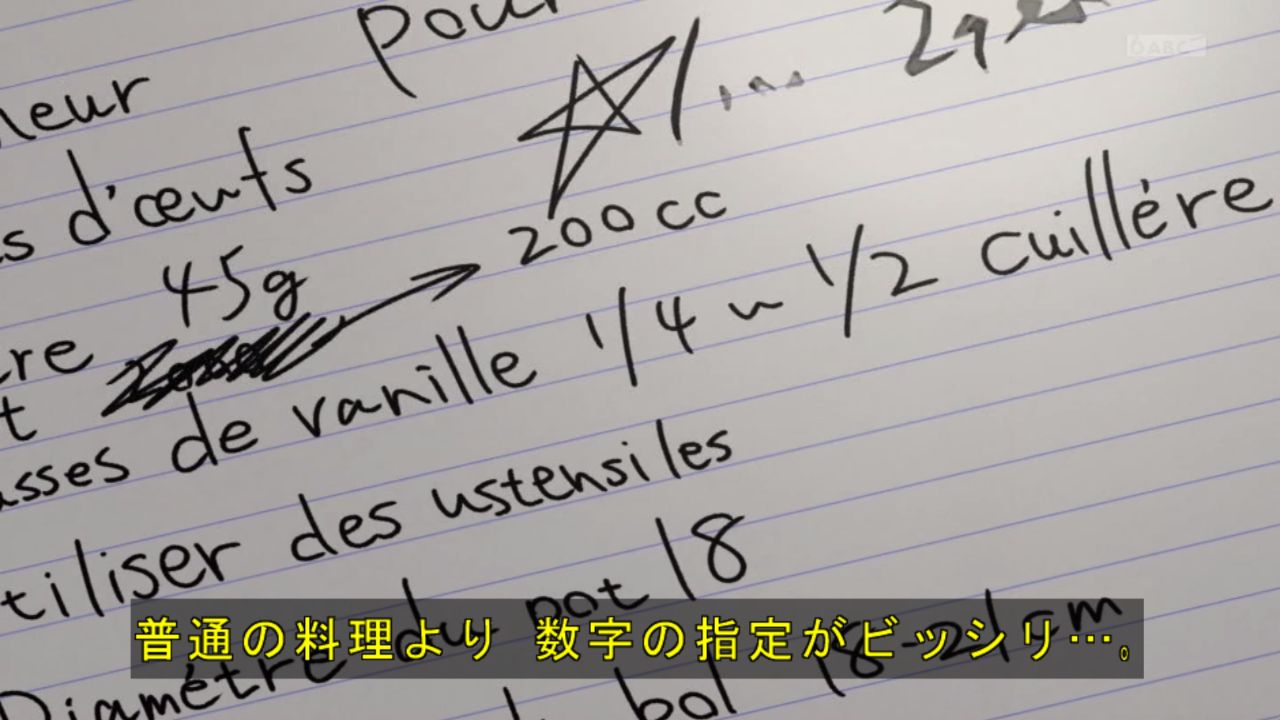 pour
... 
d'œufs
200 cc
45g
de vanille 1/4 ~ 1/2 cuillére
tiliser des ustensiles
Diamétre du pot 18
bol 18-21cm
普通の料理より 数字の指定がビッシリ…。
6 ABC